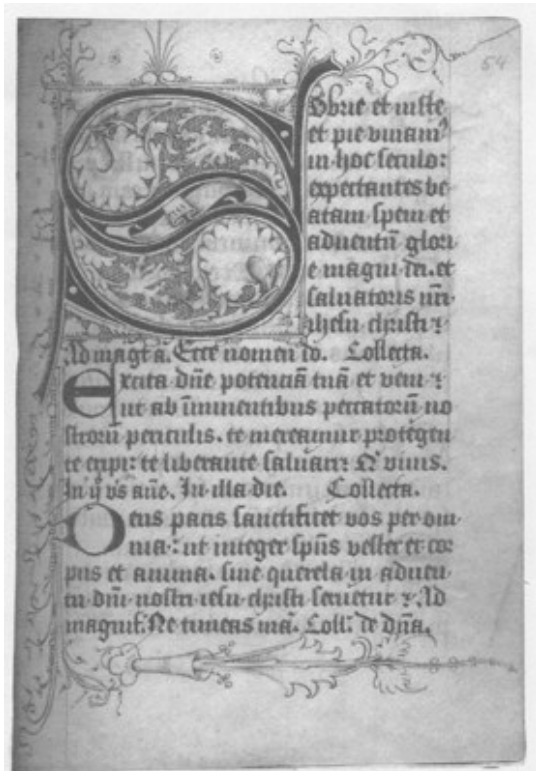 54
Sobrie et iuste
et pie viuam9
in hoc seculo:
expectantes be
atam spem et
aduentū glori-
e magni dei. et
saluatoris nr̄i
ihesu christi ⁊
Ad magt a. Ecce nomen do. Collecta.
Excita dn̄e potenciā tuā et veni ⁊
ut ab īminentibus peccatorū no
strorū periculis. te mereamur protegen
te eripi: te liberante saluari: Q viuis.
In ij vs ane. In illa die. Collecta.
Deus pacis sanctificet vos per om-
nia: ut integer spūs vester et cor
pus et anima. sine querela in aduen-
tu dn̄i nostri iesu christi seruetur ⁊. Ad
magnif. Ne timeas ma. Coll. de dn̄a.